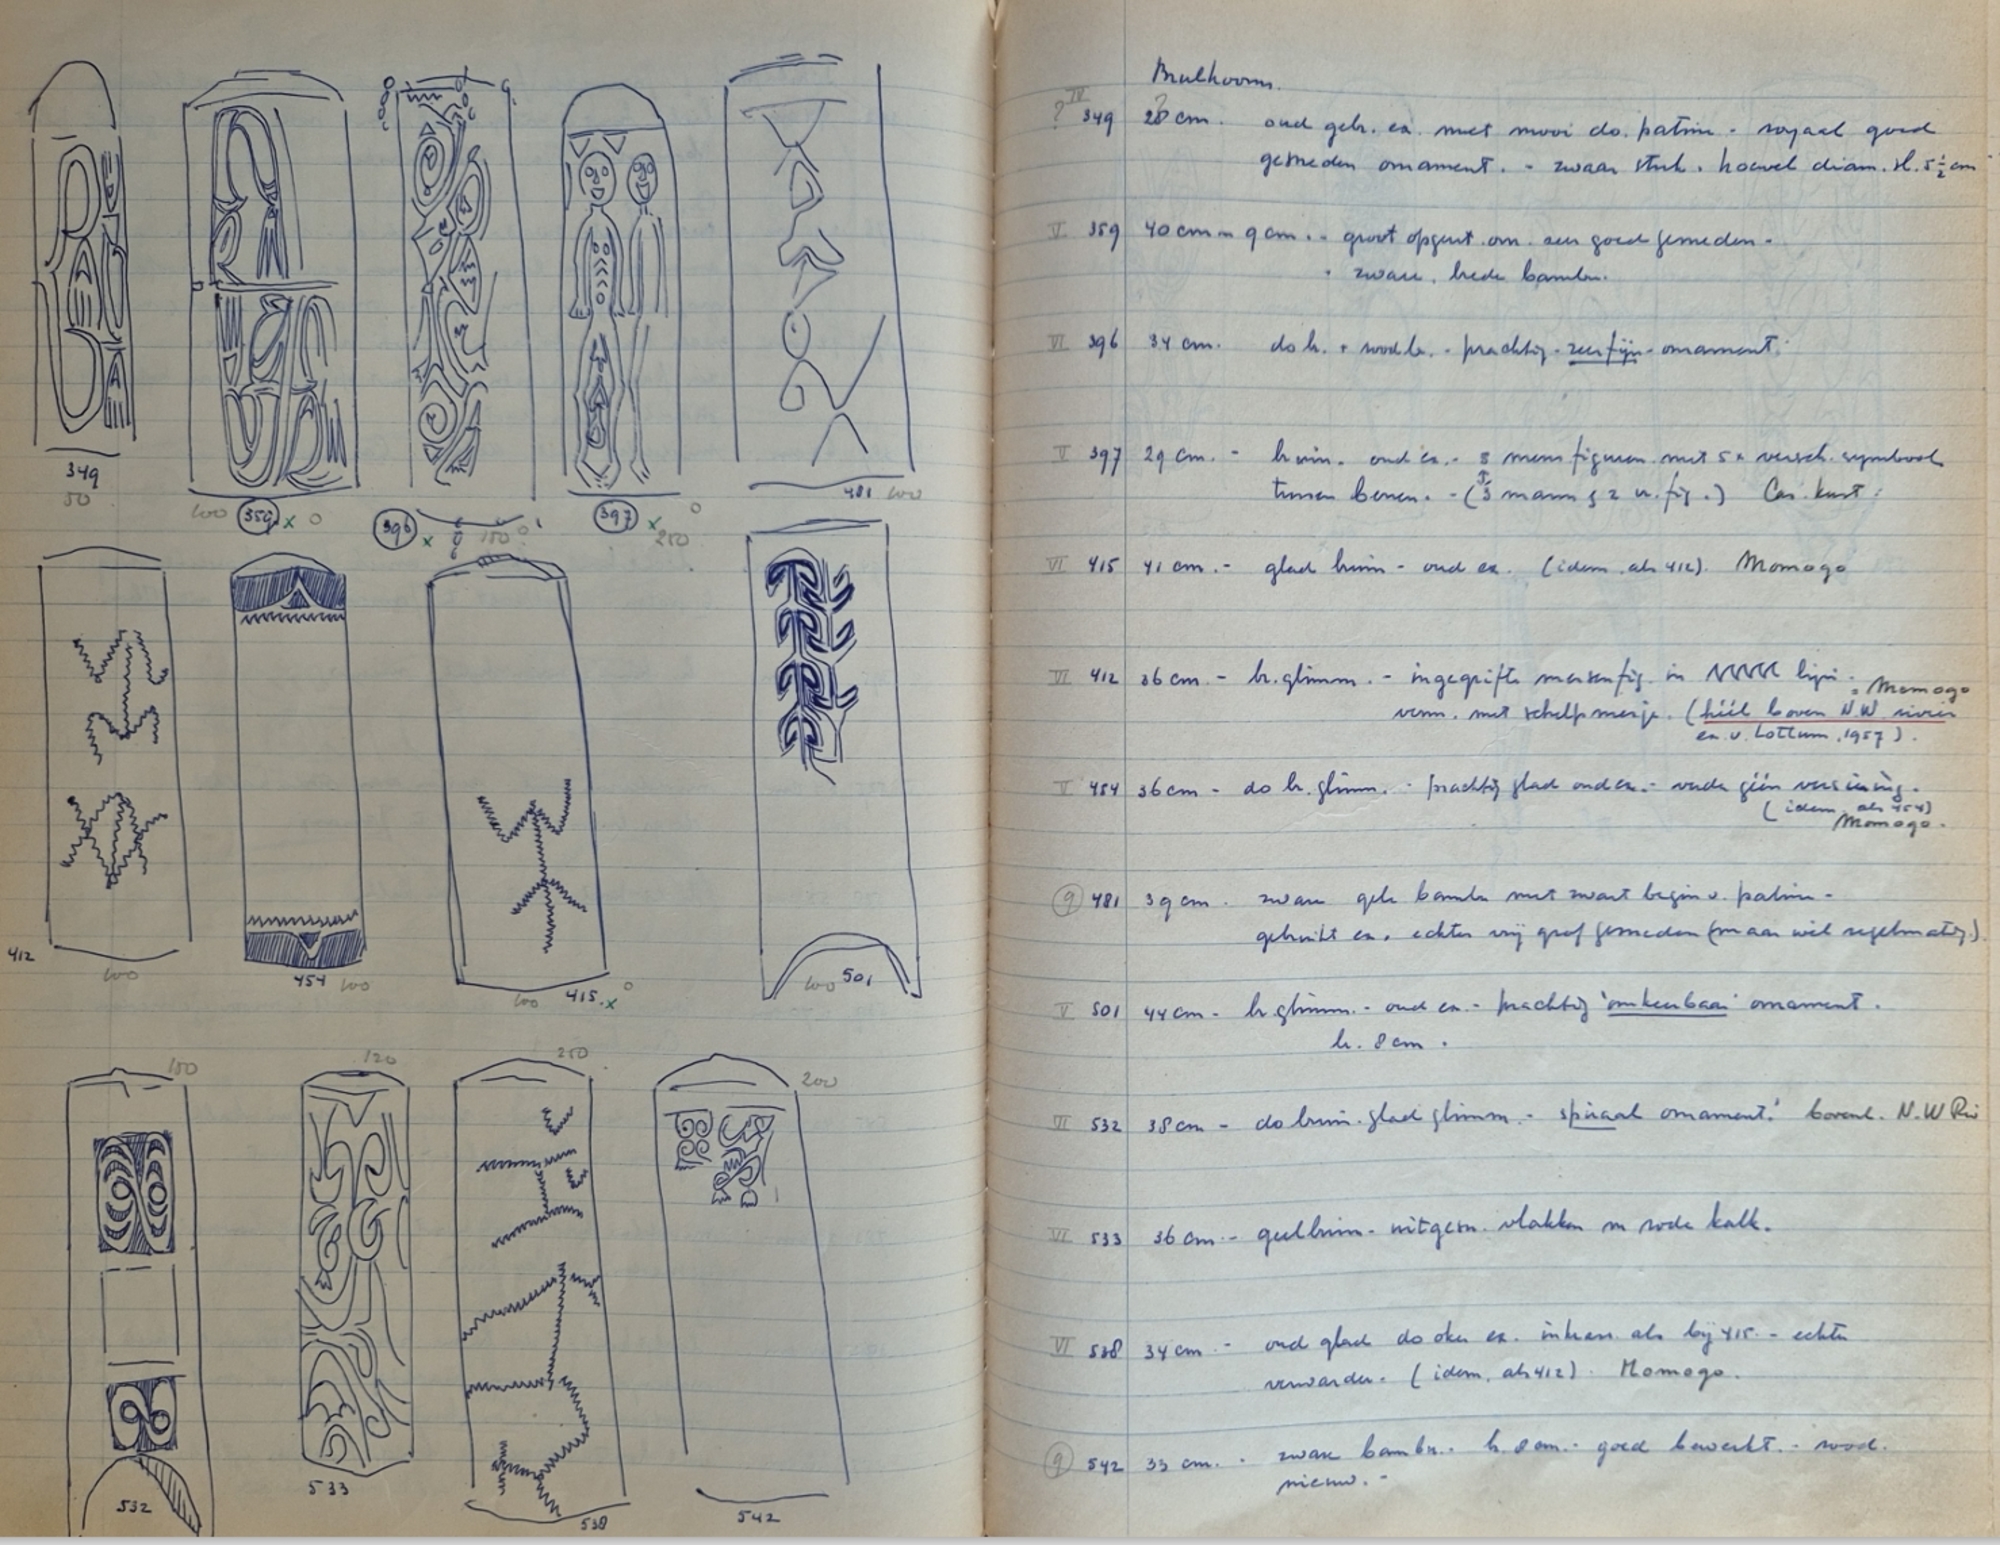 349
50
100 359 x o
396 x 150 o
397 x o
250
481 100
412
100
454 100
100 415. x o
100 501
150
120
250
200
532
533
538
542
Brulhoorns.
? IV 349 28 cm. oud gebr. ex. met mooi do. patin - royaal goed
gesneden ornament. - zwaar stuk. hoewel diam. sl. 5½ cm
V 359 40 cm - 9 cm. - groot opgezt. orn. zeer goed gesneden -
zware, brede bamboe.
VI 396 34 cm. do br. + rood br. - prachtig - zeer fijn - ornament.
V 397 29 cm. - bruin. oud ex. - 5 mensfiguren met 5x versch. symbool
tussen benen. - (3 mann & 2 vr. fig.) Cas. kust.
VI 415 41 cm. - glad bruin - oud ex. (idem. als 412). Momogo
VI 412 36 cm - br. glimm. - ingegrifte mensenfig. in lijn. - Momogo
verm. met schelpmesje. (héél boven N.W. rivier
ex. v. Lottum, 1957).
V 454 36 cm - do br. glimm. - prachtig glad oud ex. - verder géén versiering.
(idem. als 454)
Momogo.
9 481 39 cm. zware gele bamboe met zwart begin v. patin -
gebruikt ex. echter vrij grof gesneden (maar wel regelmatig).
V 501 44 cm - br. glimm. - oud ex. - prachtig 'omkeerbaar' ornament.
br. 8 cm.
VI 532 38 cm - do bruin. glad glimm. - spiraal ornament! bovenl. N.W Riv
VI 533 36 cm - geelbruin - uitgesn. vlakken m rode kalk.
VI 538 34 cm - oud glad do oker ex. inkras. als bij 415. - echter
verwarder. (idem. als 412). Momogo.
9 542 33 cm. - zware bamboe. - br. 8 cm. - goed bewerkt. - rood.
nieuw. -